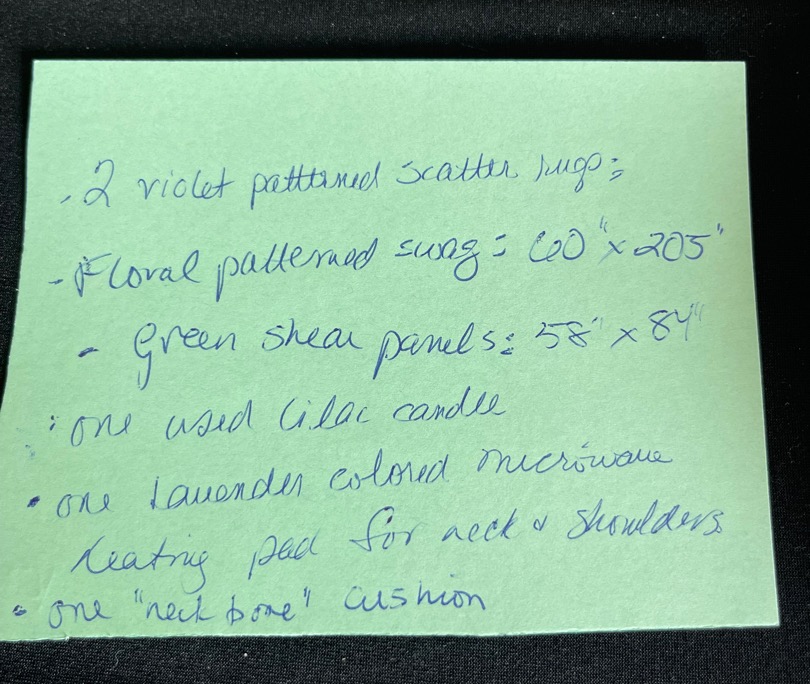 - 2 violet patterned scatter rugs:
- Floral patterned swag: 60" x 205"
- Green shear panels: 58" x 84"
: one used lilac candle
• one lavender colored microwave
heating pad for neck & shoulders
• one "neck bone" cushion